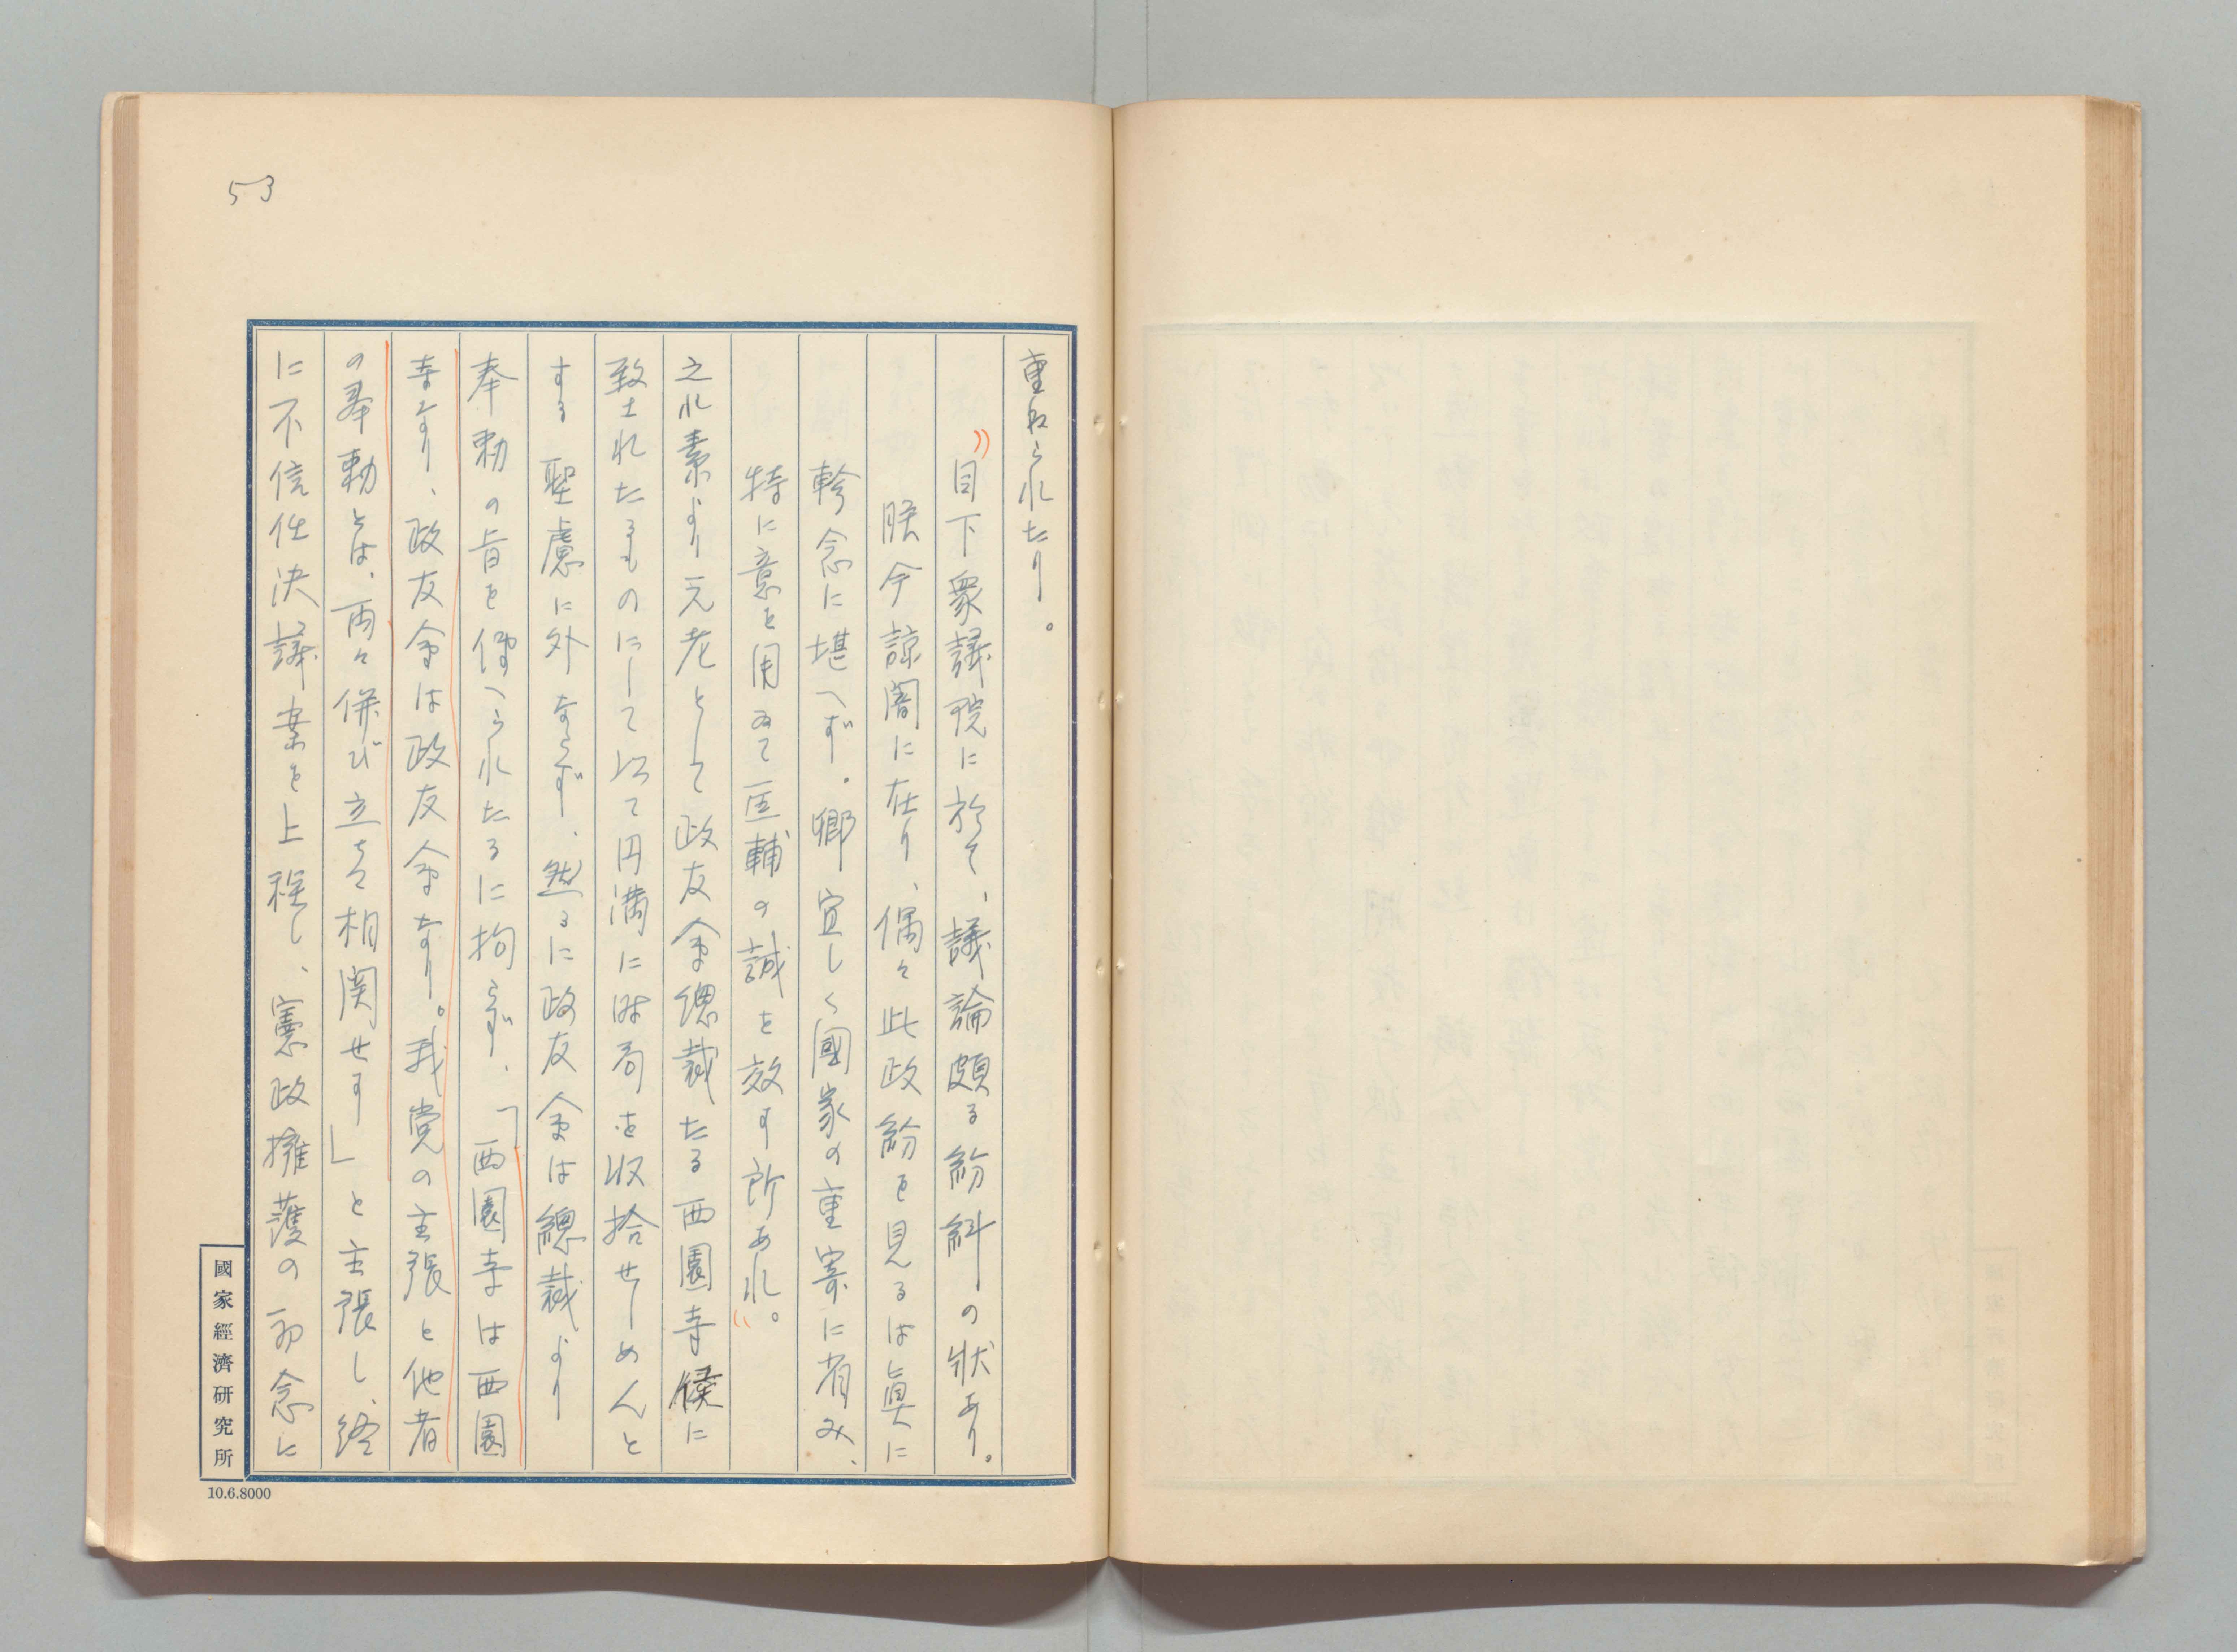 53
重ねられたり。
目下衆議院に於て、議論頗る紛糾の狀あり。
朕今諒闇に在り、偶々此政紛を見るは眞に
軫念に堪へず。卿宜しく國家の重寄に省み、
特に意を用ゐて匡輔の誠を效す所あれ。
之れ素より元老として政友会總裁たる西園寺侯に
致されたるものにして以て円満に時局を収拾せしめんと
する聖慮に外ならず、然るに政友会は總裁より
奉勅の旨を傳へられたるに拘らず、「西園寺は西園
寺なり、政友会は政友会なり。我党の主張と他者
の奉勅とは、両々併び立ちて相関せず」と主張し、終
に不信任決議案を上程し、憲政擁護の一念に
國家經濟研究所
10.6.8000